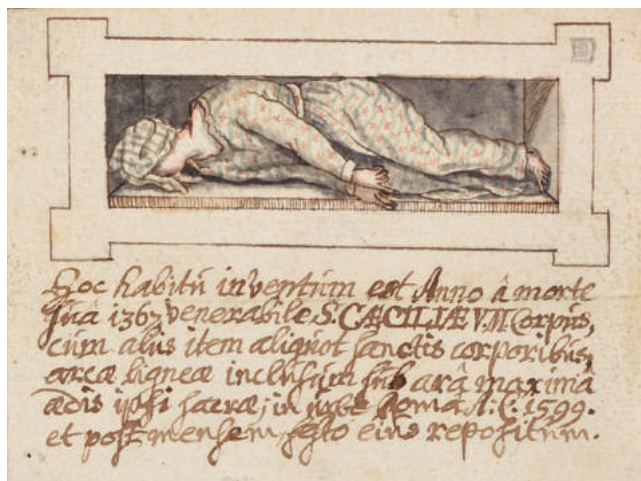 Hoc habitû inventum est Anno â morte
suâ 1367 venerabile S. CÆCILIÆ V.M Corpus,
cum aliis item aliquot sanctis corporibus,
arcæ ligneæ inclusum sub arâ maximâ
ædis ipsi sacræ, in urbe Româ A. C. 1599.
et post mensem festo eius repositum.